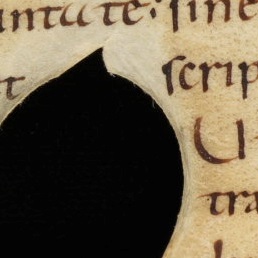 untate: sine
t scrip
U
tra